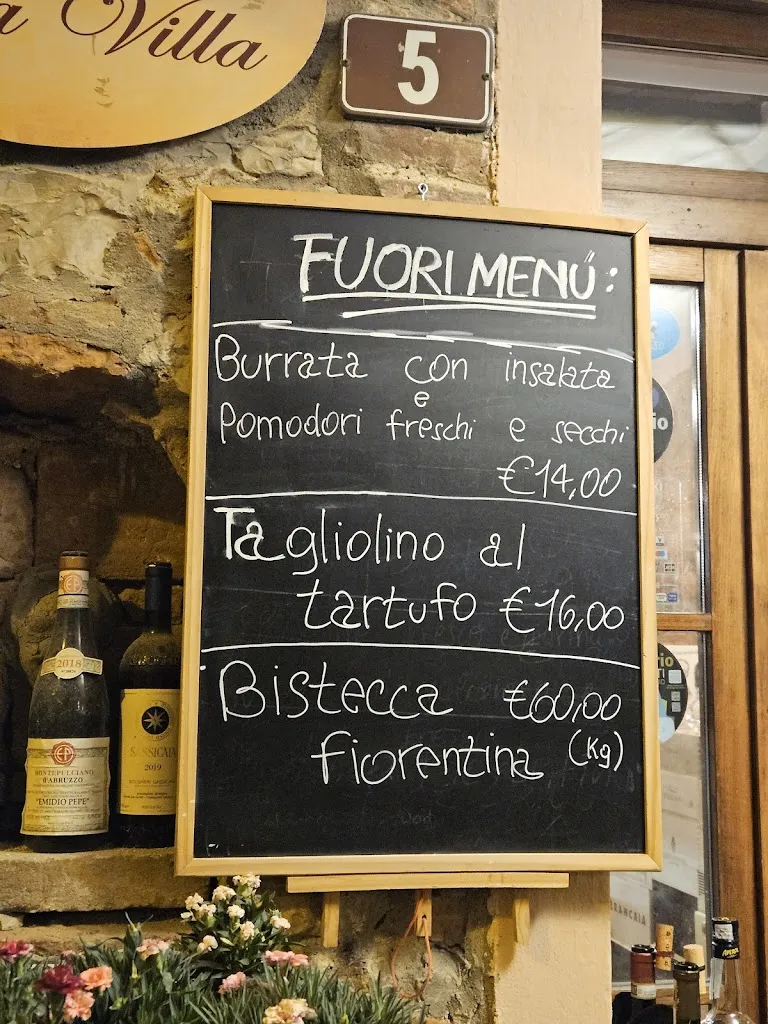 a Villa
5
FUORI MENÚ:
Burrata con insalata
e
Pomodori freschi e secchi
€14,00
Tagliolino al
tartufo €16,00
Bistecca €60,00
fiorentina (Kg)
2018
MONTEPULCIANO
D'ABRUZZO
"EMIDIO PEPE"
SASSICAIA
2019